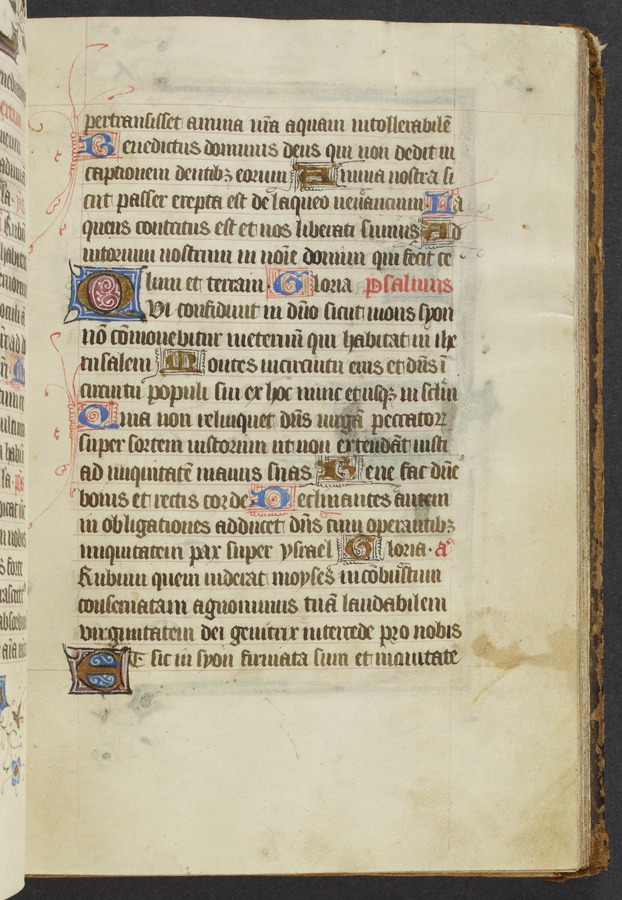 pertransisset anima nr̄a aquam intollerabilē
Benedictus dominus deus qui non dedit in
captionem dentibꝫ eorum Anima nostra si
cut passer erepta est de laqueo venancium La
queus contritus est et nos liberati sumus Ad
iutorium nostrum in noīe domini qui fecit ce
lum et terram. Gloria psalmus
Qui confidunt in dn̄o sicut mons syon
nō cōmouebitur in eternū qui habitat in ihe
rusalem Montes in circuitu eius et dn̄s ī
circuitu populi sui ex hoc nunc et usqꝫ in sc̄lm
Quia non relinquet dn̄s uirgā peccatoꝝ
super sortem iustorum ut non extendāt iusti
ad iniquitatē manus suas Bene fac dn̄e
bonis et rectis corde Declinantes autem
in obligationes adducet dn̄s cum operantibꝫ
iniquitatem pax super ysrael Gloria. a
Rubum quem uiderat moyses incōbustum
conseruatam agnouimus tuā laudabilem
virginitatem dei genitrix intercede pro nobis
Et sic in syon firmata sum et in ciuitate